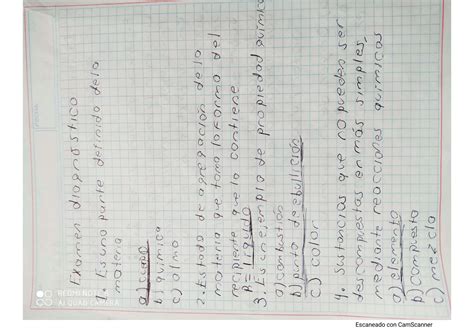 Examen diagnostico
1. Es una parte definida de la
materia
b) quimica
2. Estado de agregación de la
materia que toma la forma del
recipiente que lo contiene
R= liquido
3. Es un ejemplo de propiedad quimica
a) combustión
b) punto de ebullición
c) color
4. Sustancias que no pueden ser
descompuestas en más simples,
mediante reacciones quimicas
a) elemento
b) compuesto
c) mezcla
REDMI NOTE
AI QUAD CAMERA
Escaneado con CamScanner